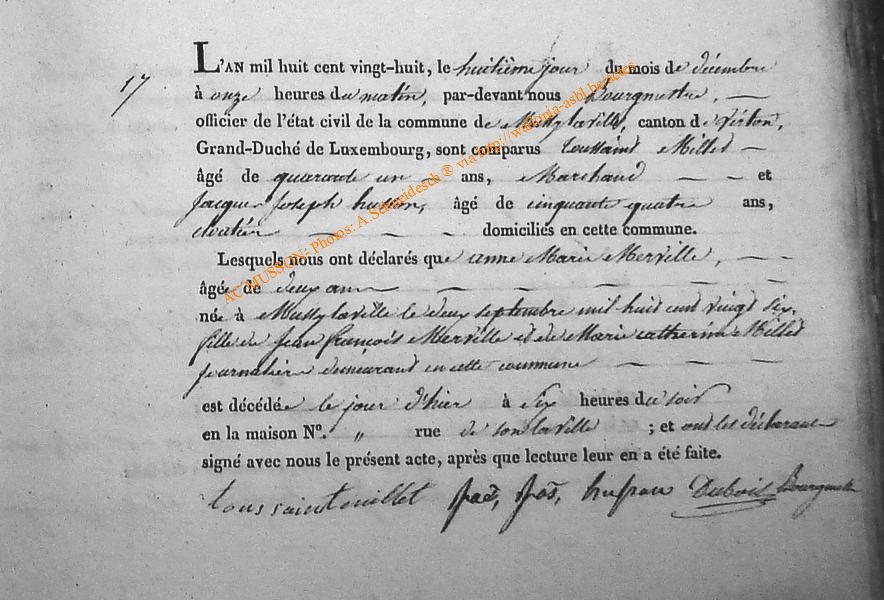 17
L'AN mil huit cent vingt-huit, le huitième jour du mois de décembre
à onze heures du matin, par-devant nous Bourgmestre,
officier de l'état civil de la commune de Mussy la ville, canton de virton,
Grand-Duché de Luxembourg, sont comparus toussaint Millet
âgé de quarante un ans, Marchand et
Jacques Joseph husson, âgé de cinquante quatre ans,
domiciliés en cette commune.
Lesquels nous ont déclarés que anne Marie Merville,
âgée de deux ans
née à Mussy la ville le deux septembre mil huit cent vingt six,
fille de Jean françois Merville et de Marie catherine Millet
journalière demeurant en cette commune
est décédée le jour d'hier à six heures du soir
en la maison N°. „ rue de son la ville ; et ont les déclarans
signé avec nous le présent acte, après que lecture leur en a été faite.
toussaint millet jac, jos, husson Dubois Bourgmestre
AC MUSSON: Photos: A.Schneidesch ® via http://wallonia-asbl.be/actes